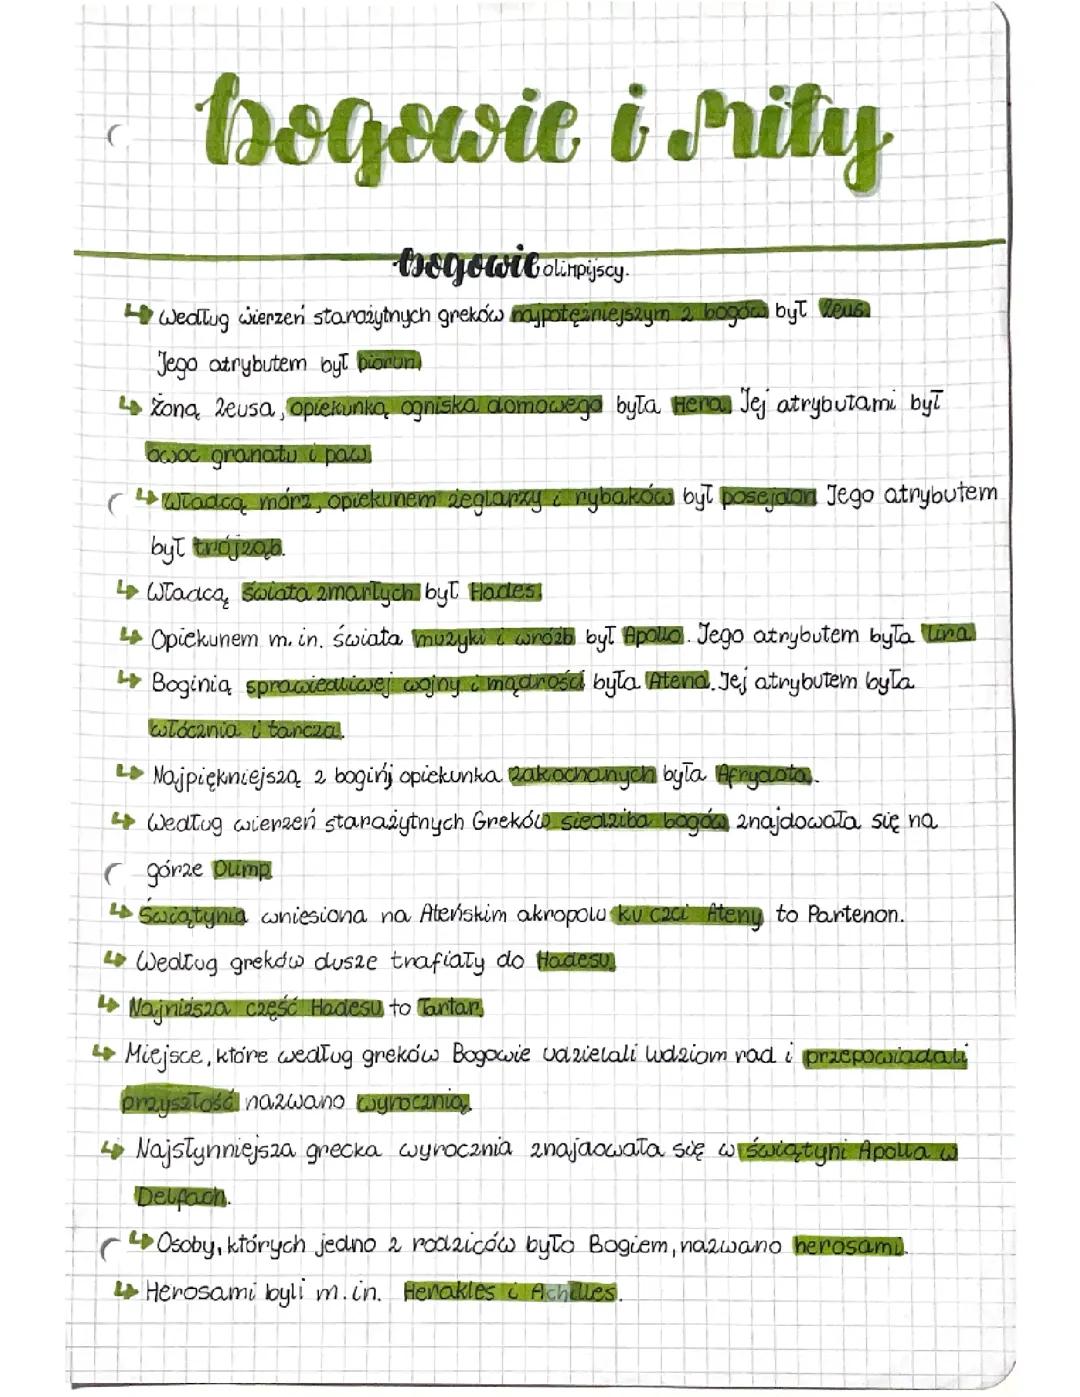 Bogowie i Mity
Bogowie olimpijscy.
↳ Według wierzeń starożytnych greków najpotężniejszym z bogów był Zeus.
Jego atrybutem był piorun.
↳ Żoną Zeusa, opiekunką ogniska domowego była Hera. Jej atrybutami był
owoc granatu i paw.
↳ Władcą mórz, opiekunem żeglarzy i rybaków był posejdon. Jego atrybutem
był trójząb.
↳ Władcą świata zmarłych był Hades.
↳ Opiekunem m. in. świata muzyki i wróżb był Apollo. Jego atrybutem była Lira
↳ Boginią sprawiedliwej wojny i mądrości była Atena. Jej atrybutem była
włócznia i tarcza.
↳ Najpiękniejszą z bogiń, opiekunka zakochanych była Afrydota.
↳ Według wierzeń starażytnych Greków siedziba bogów znajdowała się na
górze Olimp
↳ Świątynia wniesiona na Ateńskim akropolu ku czci Ateny to Partenon.
↳ Według greków dusze trafiały do Hadesu.
↳ Najniższa część Hadesu to Tartar.
↳ Miejsce, które według greków Bogowie udzielali ludziom rad i przepowiadali
przyszłość nazwano wyrocznią.
↳ Najsłynniejsza grecka wyrocznia znajdowała się w świątyni Apolla w
Delfach.
↳ Osoby, których jedno z rodziców było Bogiem, nazwano herosami.
↳ Herosami byli m. in. Herakles i Achilles.